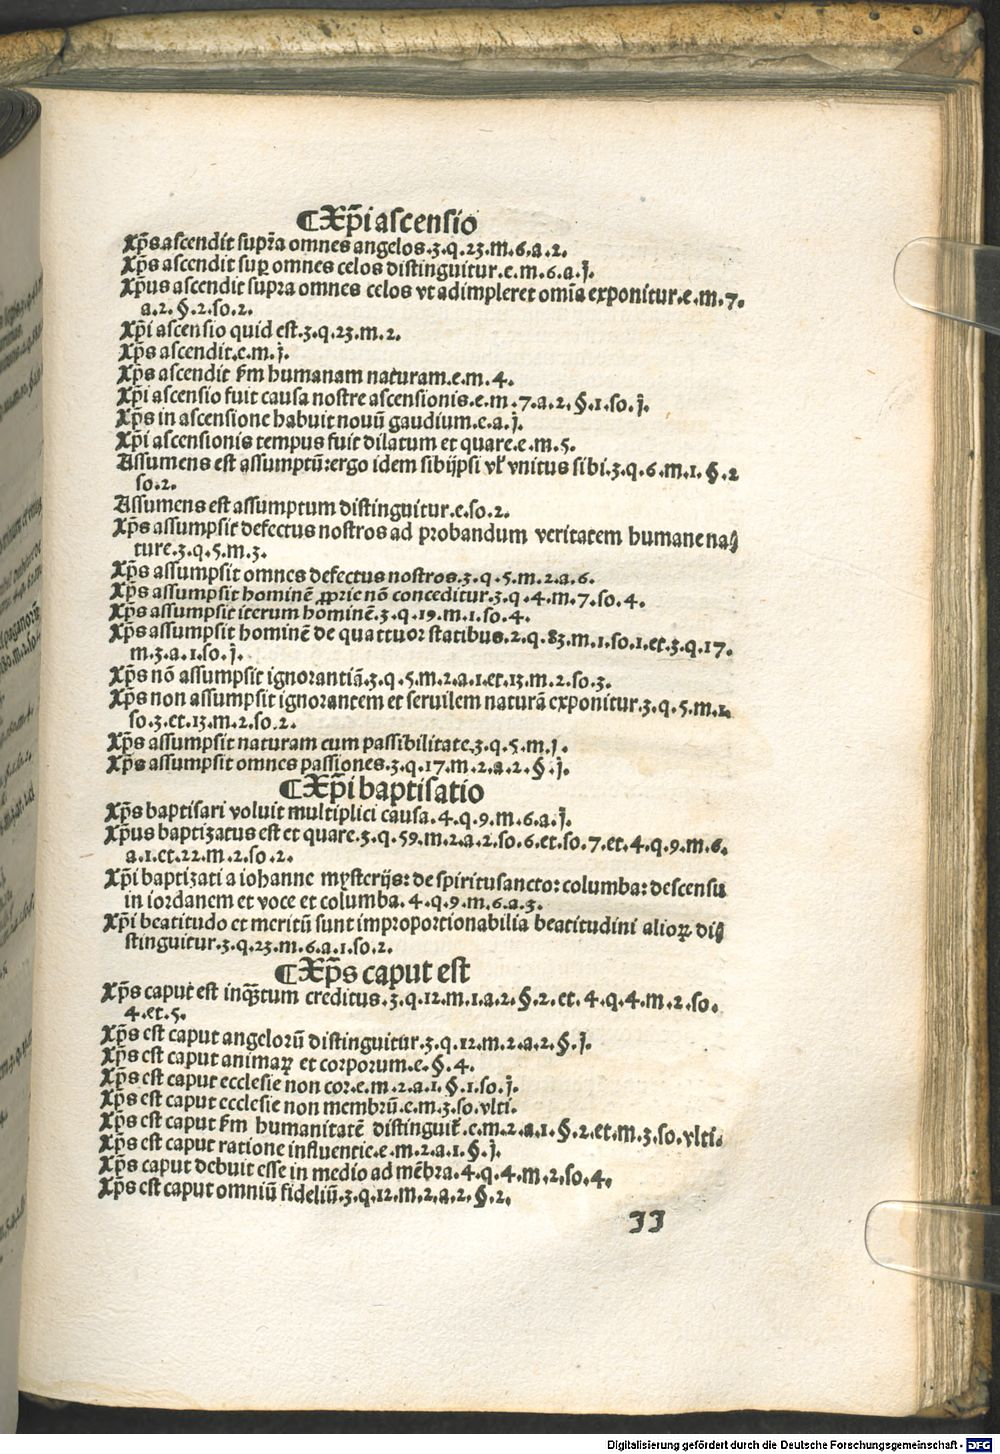 ¶Xp̄i ascensio
Xp̄s ascendit supra omnes angelos.3.q.23.m.6.a.2.
Xp̄s ascendit suꝑ omnes celos distinguitur.e.m.6.a.j.
Xp̄us ascendit supra omnes celos vt adimpleret om̄ia exponitur.e.m.7.
a.2.§.2.so.2.
Xp̄i ascensio quid est.3.q.23.m.2.
Xp̄s ascendit.e.m.j.
Xp̄s ascendit ẜm humanam naturam.e.m.4.
Xp̄i ascensio fuit causa nostre ascensionis.e.m.7.a.2.§.1.so.j.
Xp̄s in ascensione habuit nouū gaudium.e.a.j.
Xp̄i ascensionis tempus fuit dilatum et quare.e.m.5.
Assumens est assumptū:ergo idem sibijpsi vl̓ vnitus sibi.3.q.6.m.1.§.2
so.2.
Assumens est assumptum distinguitur.e.so.2.
Xp̄s assumpsit defectus nostros ad probandum veritatem humane na⸗
ture.3.q.5.m.3.
Xp̄s assumpsit omnes defectus nostros.3.q.5.m.2.a.6.
Xp̄s assumpsit hominē ꝓprie nō conceditur.3.q.4.m.7.so.4.
Xp̄s assumpsit iterum hominē.3.q.19.m.1.so.4.
Xp̄s assumpsit hominē de quattuor statibus.2.q.83.m.1.so.1.et.3.q.17.
m.3.a.1.so.j.
Xp̄s nō assumpsit ignorantiā.3.q.5.m.2.a.1.et.13.m.2.so.3.
Xp̄s non assumpsit ignorantem et seruilem naturā exponitur.3.q.5.m.1.
so.3.et.13.m.2.so.2.
Xp̄s assumpsit naturam cum passibilitate.3.q.5.m.j.
Xp̄s assumpsit omnes passiones.3.q.17.m.2.a.2.§.j.
¶Xp̄i baptisatio
Xp̄s baptisari voluit multiplici causa.4.q.9.m.6.a.j.
Xp̄us baptizatus est et quare.3.q.59.m.2.a.2.so.6.et.so.7.et.4.q.9.m.6.
a.1.et.22.m.2.so.2.
Xp̄i baptizati a iohanne mysterijs:de spiritusancto:columba:descensu
in iordanem et voce et columba.4.q.9.m.6.a.3.
Xp̄i beatitudo et meritū sunt improportionabilia beatitudini alioꝝ di⸗
stinguitur.3.q.23.m.6.a.1.so.2.
¶Xp̄s caput est
Xp̄s caput est inqᷓtum creditus.3.q.12.m.1.a.2.§.2.et.4.q.4.m.2.so.
4.et.5.
Xp̄s est caput angelorū distinguitur.3.q.12.m.2.a.2.§.j.
Xp̄s est caput animaꝝ et corporum.e.§.4.
Xp̄s est caput ecclesie non cor.e.m.2.a.1.§.1.so.j.
Xp̄s est caput ecclesie non membrū.e.m.3.so.vlti.
Xp̄s est caput ẜm humanitatē distinguit᷑.e.m.2.a.1.§.2.et.m.3.so.vlti.
Xp̄s est caput ratione influentie.e.m.2.a.1.§.j.
Xp̄s caput debuit esse in medio ad mēbra.4.q.4.m.2.so.4.
Xp̄s est caput omniū fideliū.3.q.12.m.2.a.2.§.2.
JJ
Digitalisierung gefördert durch die Deutsche Forschungsgemeinschaft - DFG